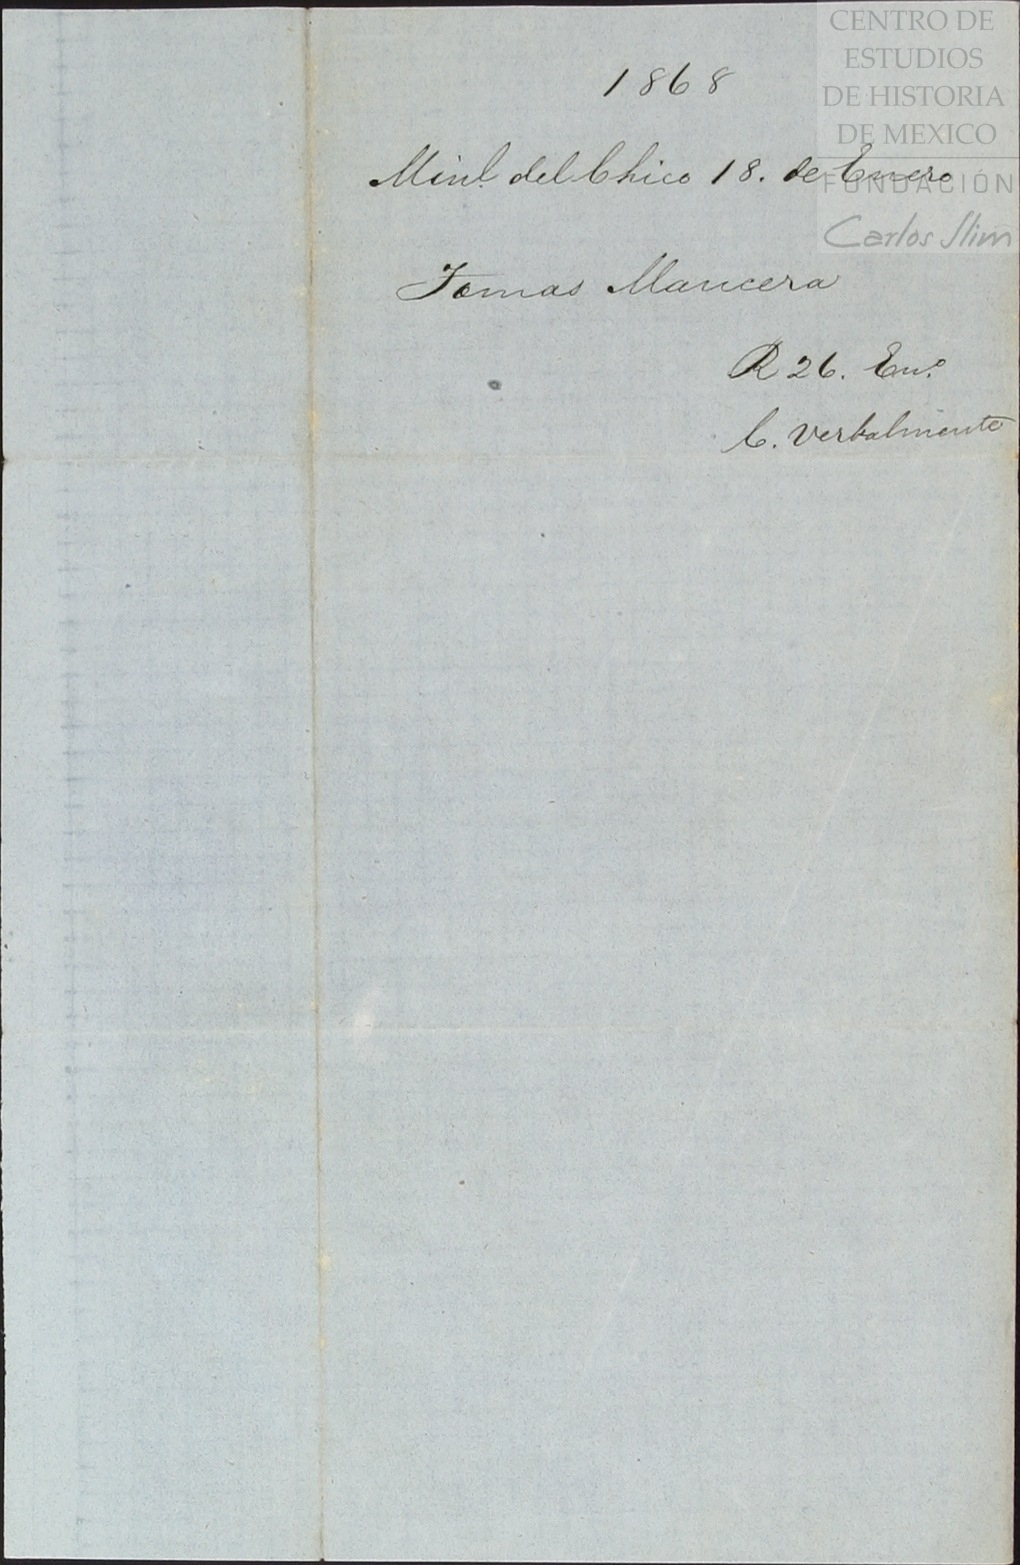 1868
Minl. del Chico 18. de Enero
Tomas Mancera
R 26. En.o
C. verbalmente
CENTRO DE
ESTUDIOS
DE HISTORIA
DE MEXICO
FUNDACIÓN
Carlos Slim